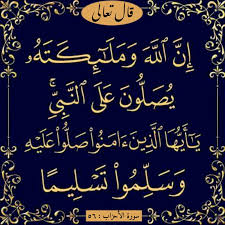 قال تعالى
إِنَّ ٱللَّهَ وَمَلَـٰٓئِكَتَهُۥ
يُصَلُّونَ عَلَى ٱلنَّبِىِّۚ
يَـٰٓأَيُّهَا ٱلَّذِينَ ءَامَنُوا۟ صَلُّوا۟ عَلَيْهِ
وَسَلِّمُوا۟ تَسْلِيمًا
سورة الأحزاب : ٥٦